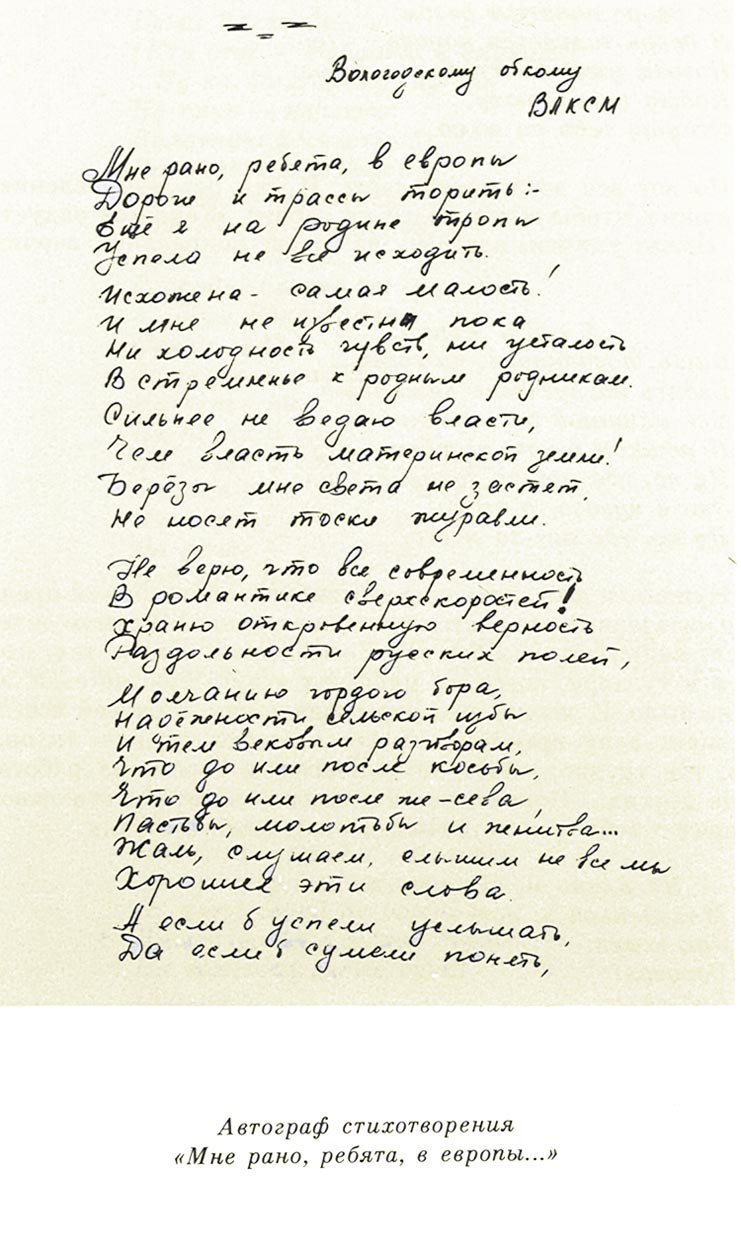 Вологодскому обкому
ВЛКСМ
Мне рано, ребята, в европы
Дороги и трассы торить:-
Ещё я на родине тропы
Успела не все исходить.
Исхожена - самая малость!
И мне не известны пока
Ни холодность чувств, ни усталость
В стремленье к родным родникам.
Сильнее не ведаю власти,
Чем власть материнской земли!
Берёзы мне света не застят,
Не носят тоски журавли.
Не верю, что вся современность
В романтике сверхскоростей!
Храню откровенную верность
Раздольности русских полей,
Молчанию гордого бора,
Надёжности сельской избы
И тем вековым разговорам,
Что до или после косьбы,
Что до или после же-сева,
Пастьбы, молотьбы и женитва...
Жаль, слушаем, слышим не все мы
Хорошие эти слова.
А если б успели услышать,
Да если б сумели понять,
Автограф стихотворения
«Мне рано, ребята, в европы...»